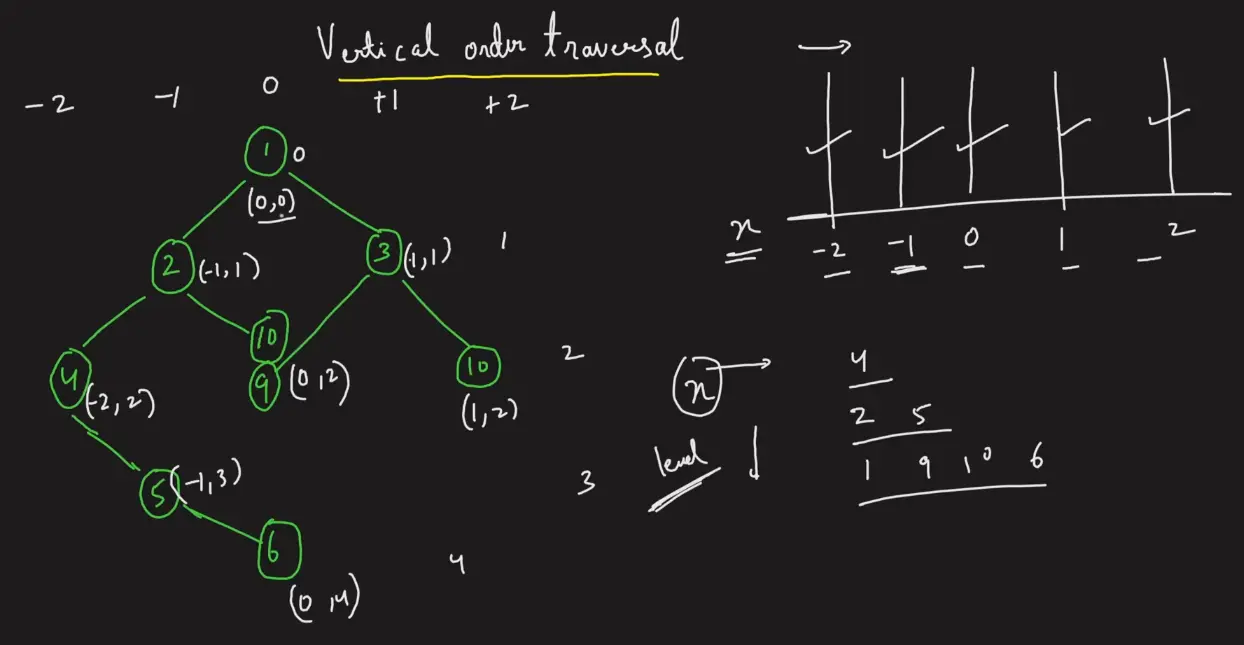 Vertical order traversal
-2 -1 0 +1 +2
1 0
(0,0)
2 (-1,1)
3 (1,1) 1
10
4 (-2,2)
9 (0,2)
10 2
(1,2)
5 (-1,3) 3
6 4
(0,4)
x -2 -1 0 1 2
x 4
2 5
level 1 9 10 6